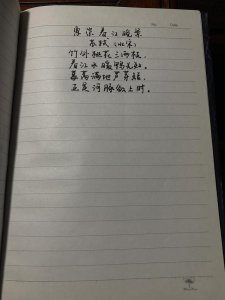 惠崇春江晚景
苏轼（北宋）
竹外桃花三两枝，
春江水暖鸭先知。
蒌蒿满地芦芽短，
正是河豚欲上时。
No.
Date